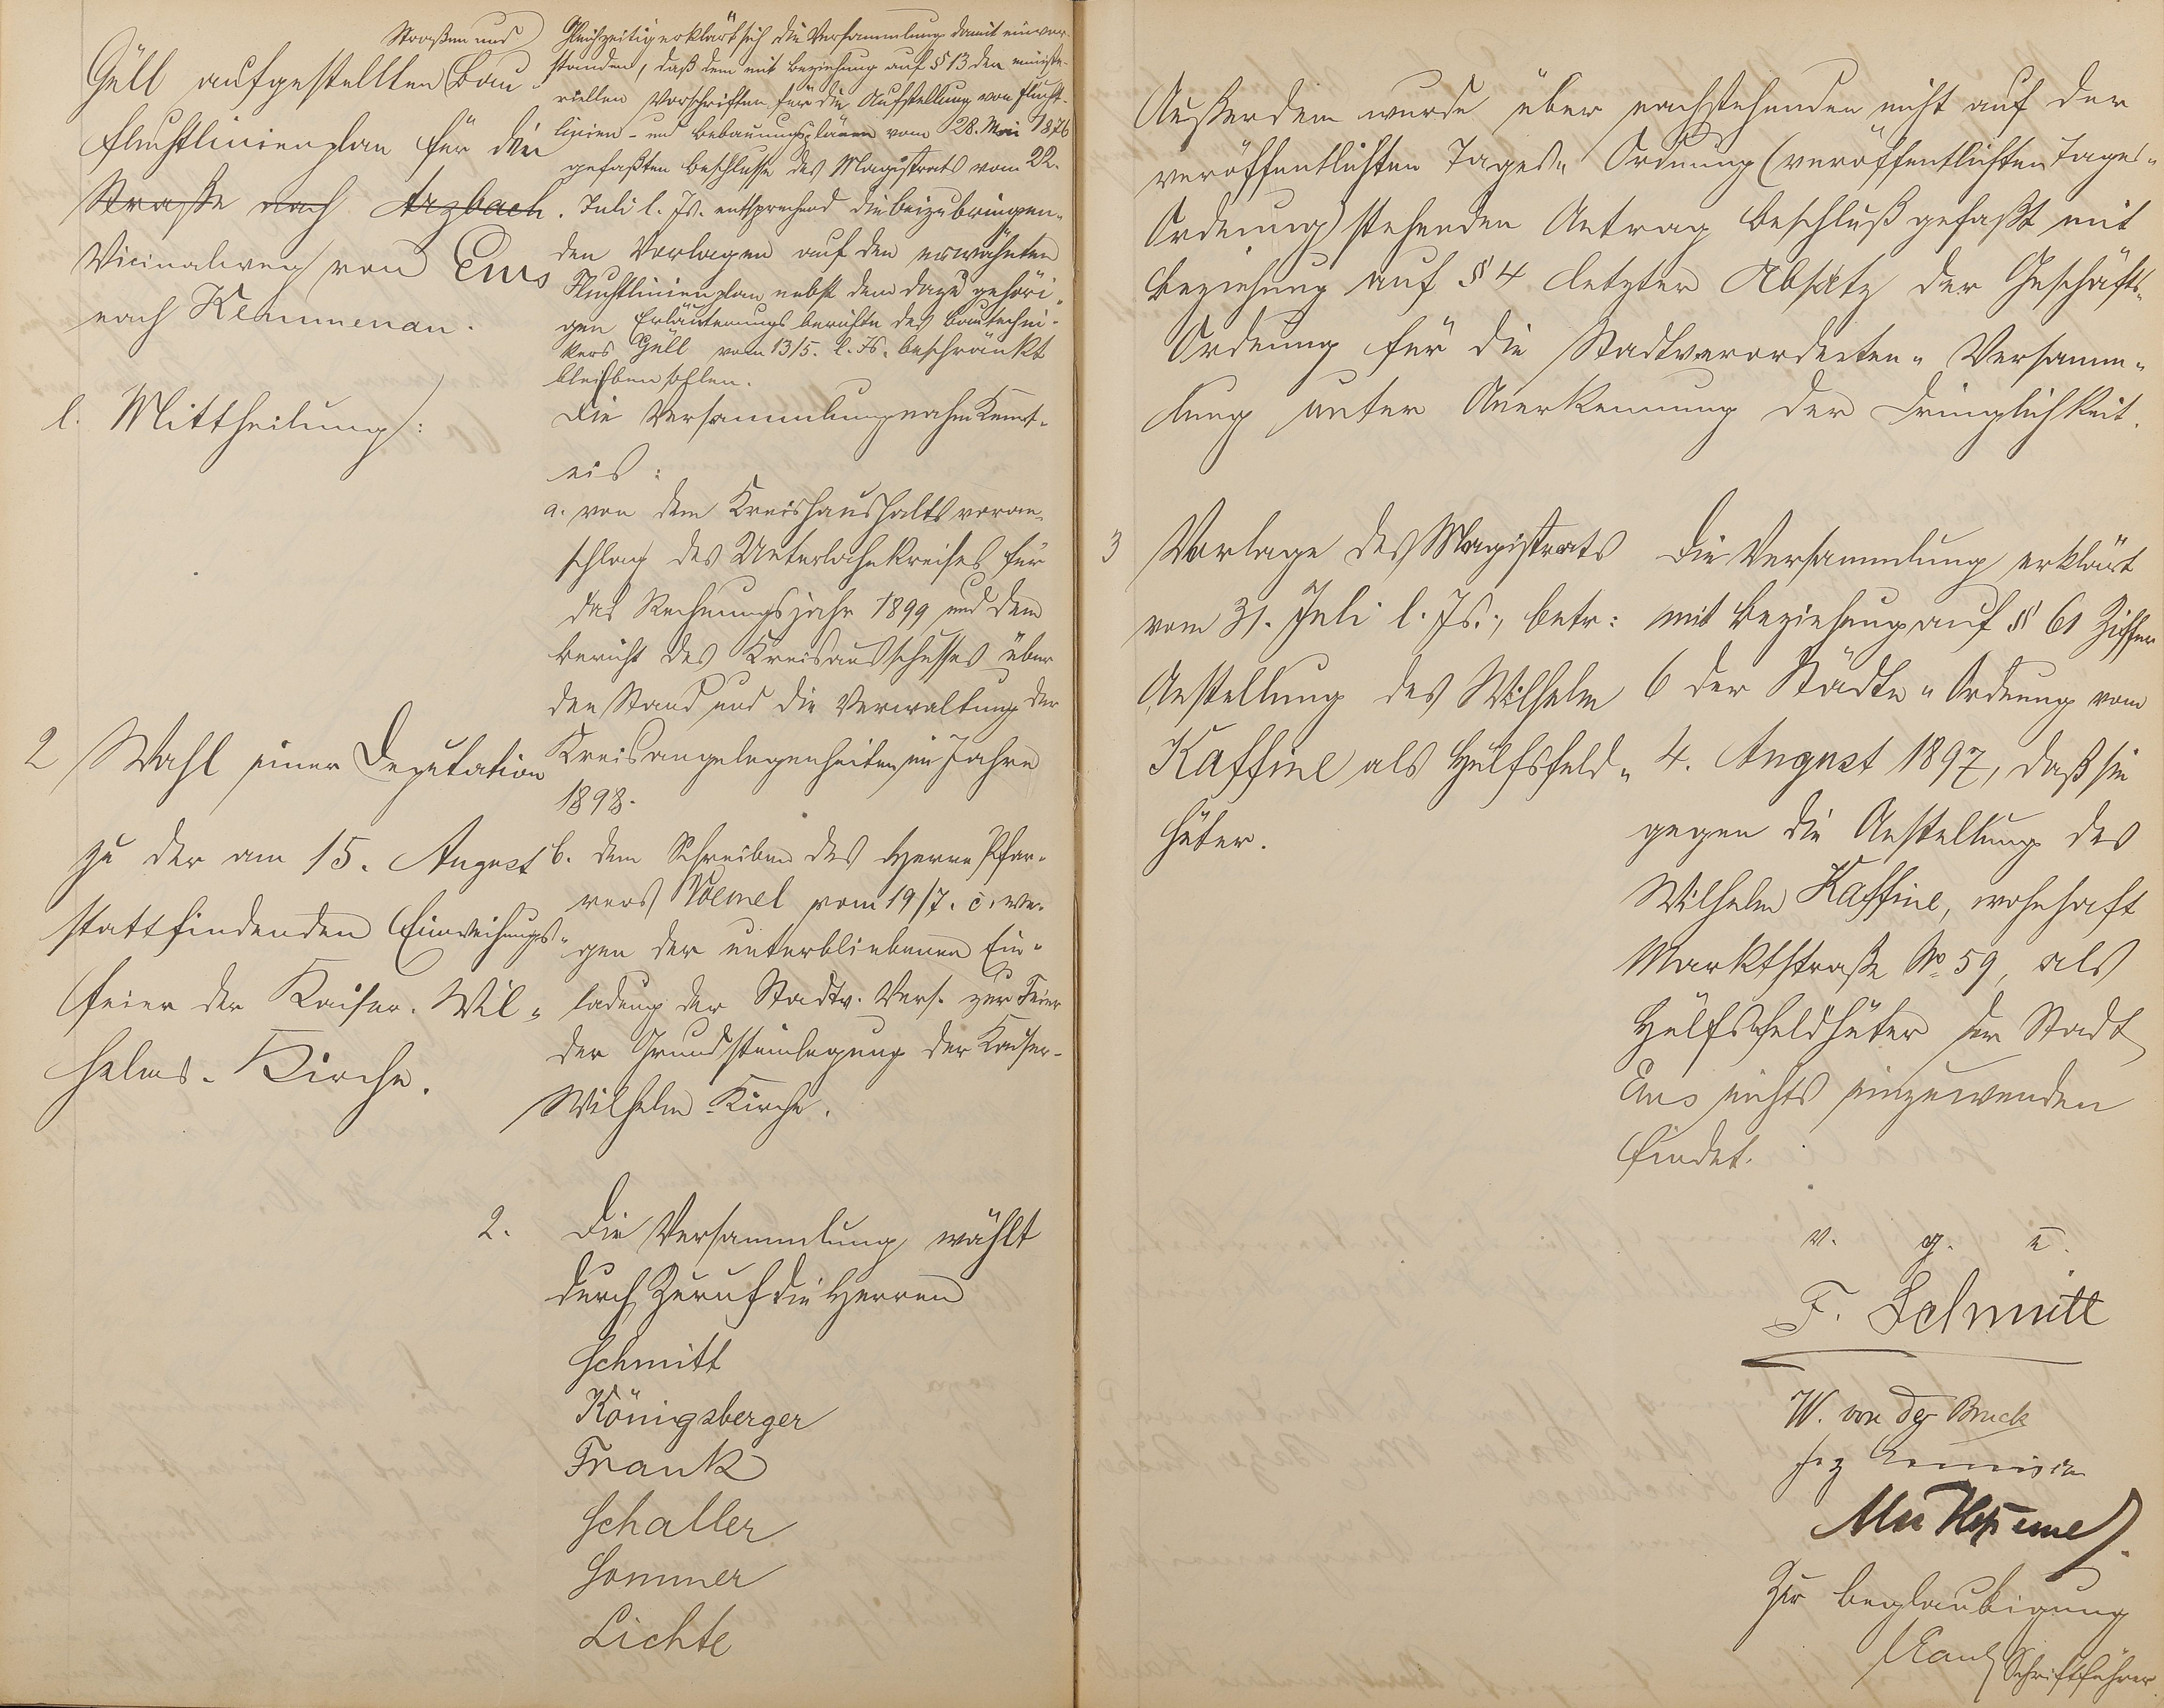 Straßen und
Güll aufgestellten Bau
fluchtlinienplan für die
Straße nach Arzbach.
Vicinalweg von Ems
nach Kemmenau.
1. Mittheilung:
2 Wahl einer Deputation
zu der am 15. August
stattfindenden Einweihungs-
feier der Kaiser-Wil-
helms-Kirche.
Gleichzeitig erklärt sich die Versammlung damit einver-
standen, daß dem mit Beziehung auf § 13 der ministe-
riellen Vorschriften für die Aufstellung von Flucht-
linien- und Bebauungsplänen vom 28. Mai 1876
gefaßten Beschlusse des Magistrats vom 22.
Juli l. Js. entsprechend die beizubringen-
den Vorlagen auf den erwähnten
Fluchtlinienplan nebst dem dazu gehöri-
gen Erläuterungsberichte des Bautechni-
kers Güll vom 13/5. l. Js. beschränkt
bleiben sollen.
Die Versammlung nahm Kennt-
nis:
a. von dem Kreishaushaltsvoran-
schlag des Unterlahnkreises für
das Rechnungsjahr 1899 und dem
Bericht des Kreisausschusses über
den Stand und die Verwaltung der
Kreisangelegenheiten im Jahre
1898.
b. dem Schreiben des Herrn Pfar-
rers Vömel vom 19/7. c. we-
gen der unterbliebenen Ein-
ladung der Stadtv. Vers. zur Feier
der Grundsteinlegung der Kaiser-
Wilhelm-Kirche.
2. Die Versammlung wählt
durch Zuruf die Herren
Schmitt
Königsberger
Frank
Schaller
Sommer
Lichte
Außerdem wurde über nachstehenden nicht auf der
veröffentlichten Tages-Ordnung (veröffentlichten Tages-
Ordnung) stehenden Antrag Beschluß gefaßt mit
Beziehung auf § 4 letzter Absatz der Geschäfts-
Ordnung für die Stadtverordneten-Versamm-
lung unter Anerkennung der Dringlichkeit.
3 Vorlage des Magistrats
vom 31. Juli l. Js., betr:
Anstellung des Wilhelm
Kaffine als Hülfsfeld-
hüter.
Die Versammlung erklärt
mit Beziehung auf § 61 Ziffer
6 der Städte-Ordnung vom
4. August 1897, daß sie
gegen die Anstellung des
Wilhelm Kaffine, wohnhaft
Marktstraße No 59, als
Hülfsfeldhüter der Stadt
Ems nichts einzuwenden
findet.
v. g. u.
F. Schmitt
W. von der Bruck
Zur Beglaubigung
Schriftführer